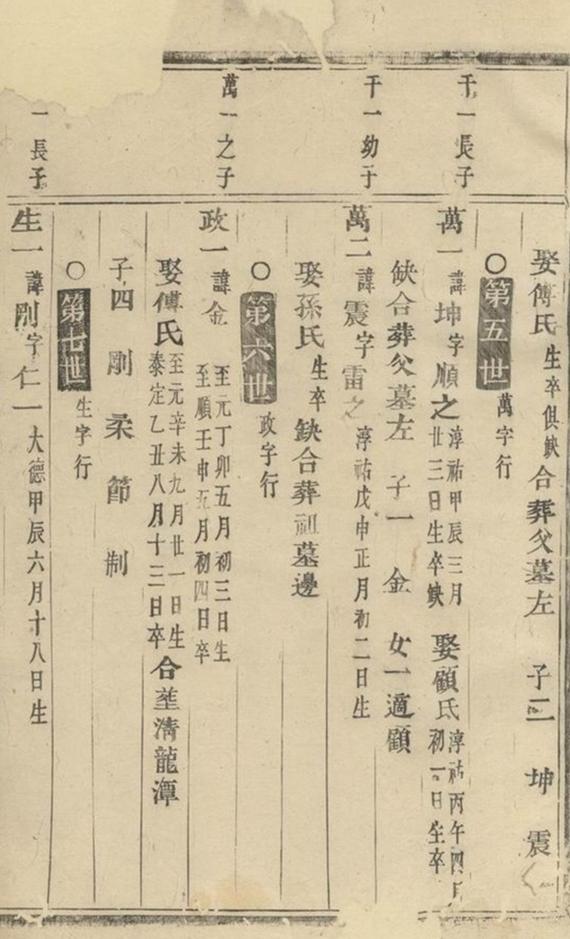 娶傅氏生卒俱缺合葬父墓左 子二 坤 震
○第五世萬字行
千一長子
萬一諱坤字順之淳祐甲辰三月廿三日生卒缺 娶顧氏淳祐丙午四月初一日生卒
缺合葬父墓左 子一 金 女一適顧
千一幼子
萬二諱震字雷之淳祐戊申正月初二日生
娶孫氏生卒缺合葬祖墓邊
○第六世政字行
萬一之子
政一諱金至元丁卯五月初三日生至順壬申五月初四日卒
娶傅氏至元辛未九月廿一日生泰定乙丑八月十三日卒合塟清龍潭
子四 剛 柔 節 制
○第七世生字行
一長子
生一諱剛字仁一大德甲辰六月十八日生